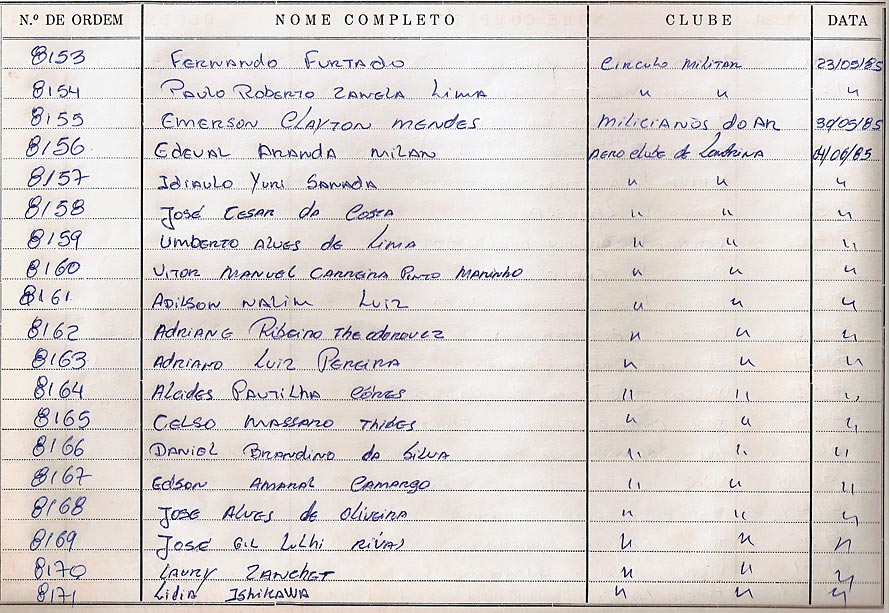 N.º DE ORDEM NOME COMPLETO CLUBE DATA
8153 FERNANDO FURTADO Circulo Militar 23/05/85
8154 PAULO ROBERTO ZANELA LIMA " " "
8155 EMERSON CLAYTON MENDES MILICIANOS DO AR 30/05/85
8156 EDEVAL ARANDA MILAN AERO clube de Londrina 04/06/85
8157 Idiaulo Yuri SANADA " " "
8158 José CESAR da Costa " " "
8159 UMBERTO ALVES de Lima " " "
8160 VITOR MANUEL CARREIRA PINTO MARINHO " " "
8161 ADILSON NALIM LUIZ " " "
8162 ADRIANE Ribeiro Theodorovez " " "
8163 ADRIANO LUIZ PEREIRA " " "
8164 Alcides PAUTILHA " " "
8165 CELSO MASSARO " " "
8166 DANIEL BRANDINO da Silva " " "
8167 EDSON AMARAL CAMARGO " " "
8168 JOSE ALVES de OLIVEIRA " " "
8169 JOSÉ GIL RIVAS " " "
8170 LAURY ZANCHET " " "
8171 Lidia ISHIKAWA " " "